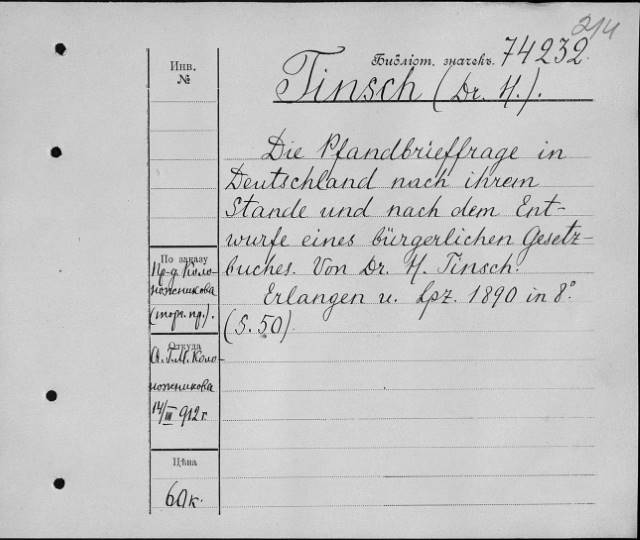 214
Библіот. значекъ. 74232.
Инв.
№
Tinsch (Dr. H.).
Die Pfandbrieffrage in
Deutschland nach ihrem
Stande und nach dem Ent-
wurfe eines bürgerlichen Gesetz-
buches. Von Dr. H. Tinsch.
Erlangen u. Lpz. 1890 in 8°
(S. 50)
По заказу
Пр-д. Коло-
ножникова
(торг. пр.).
Откуда
Коло-
ножникова
14/III 912 г.
Цѣна
60 к.